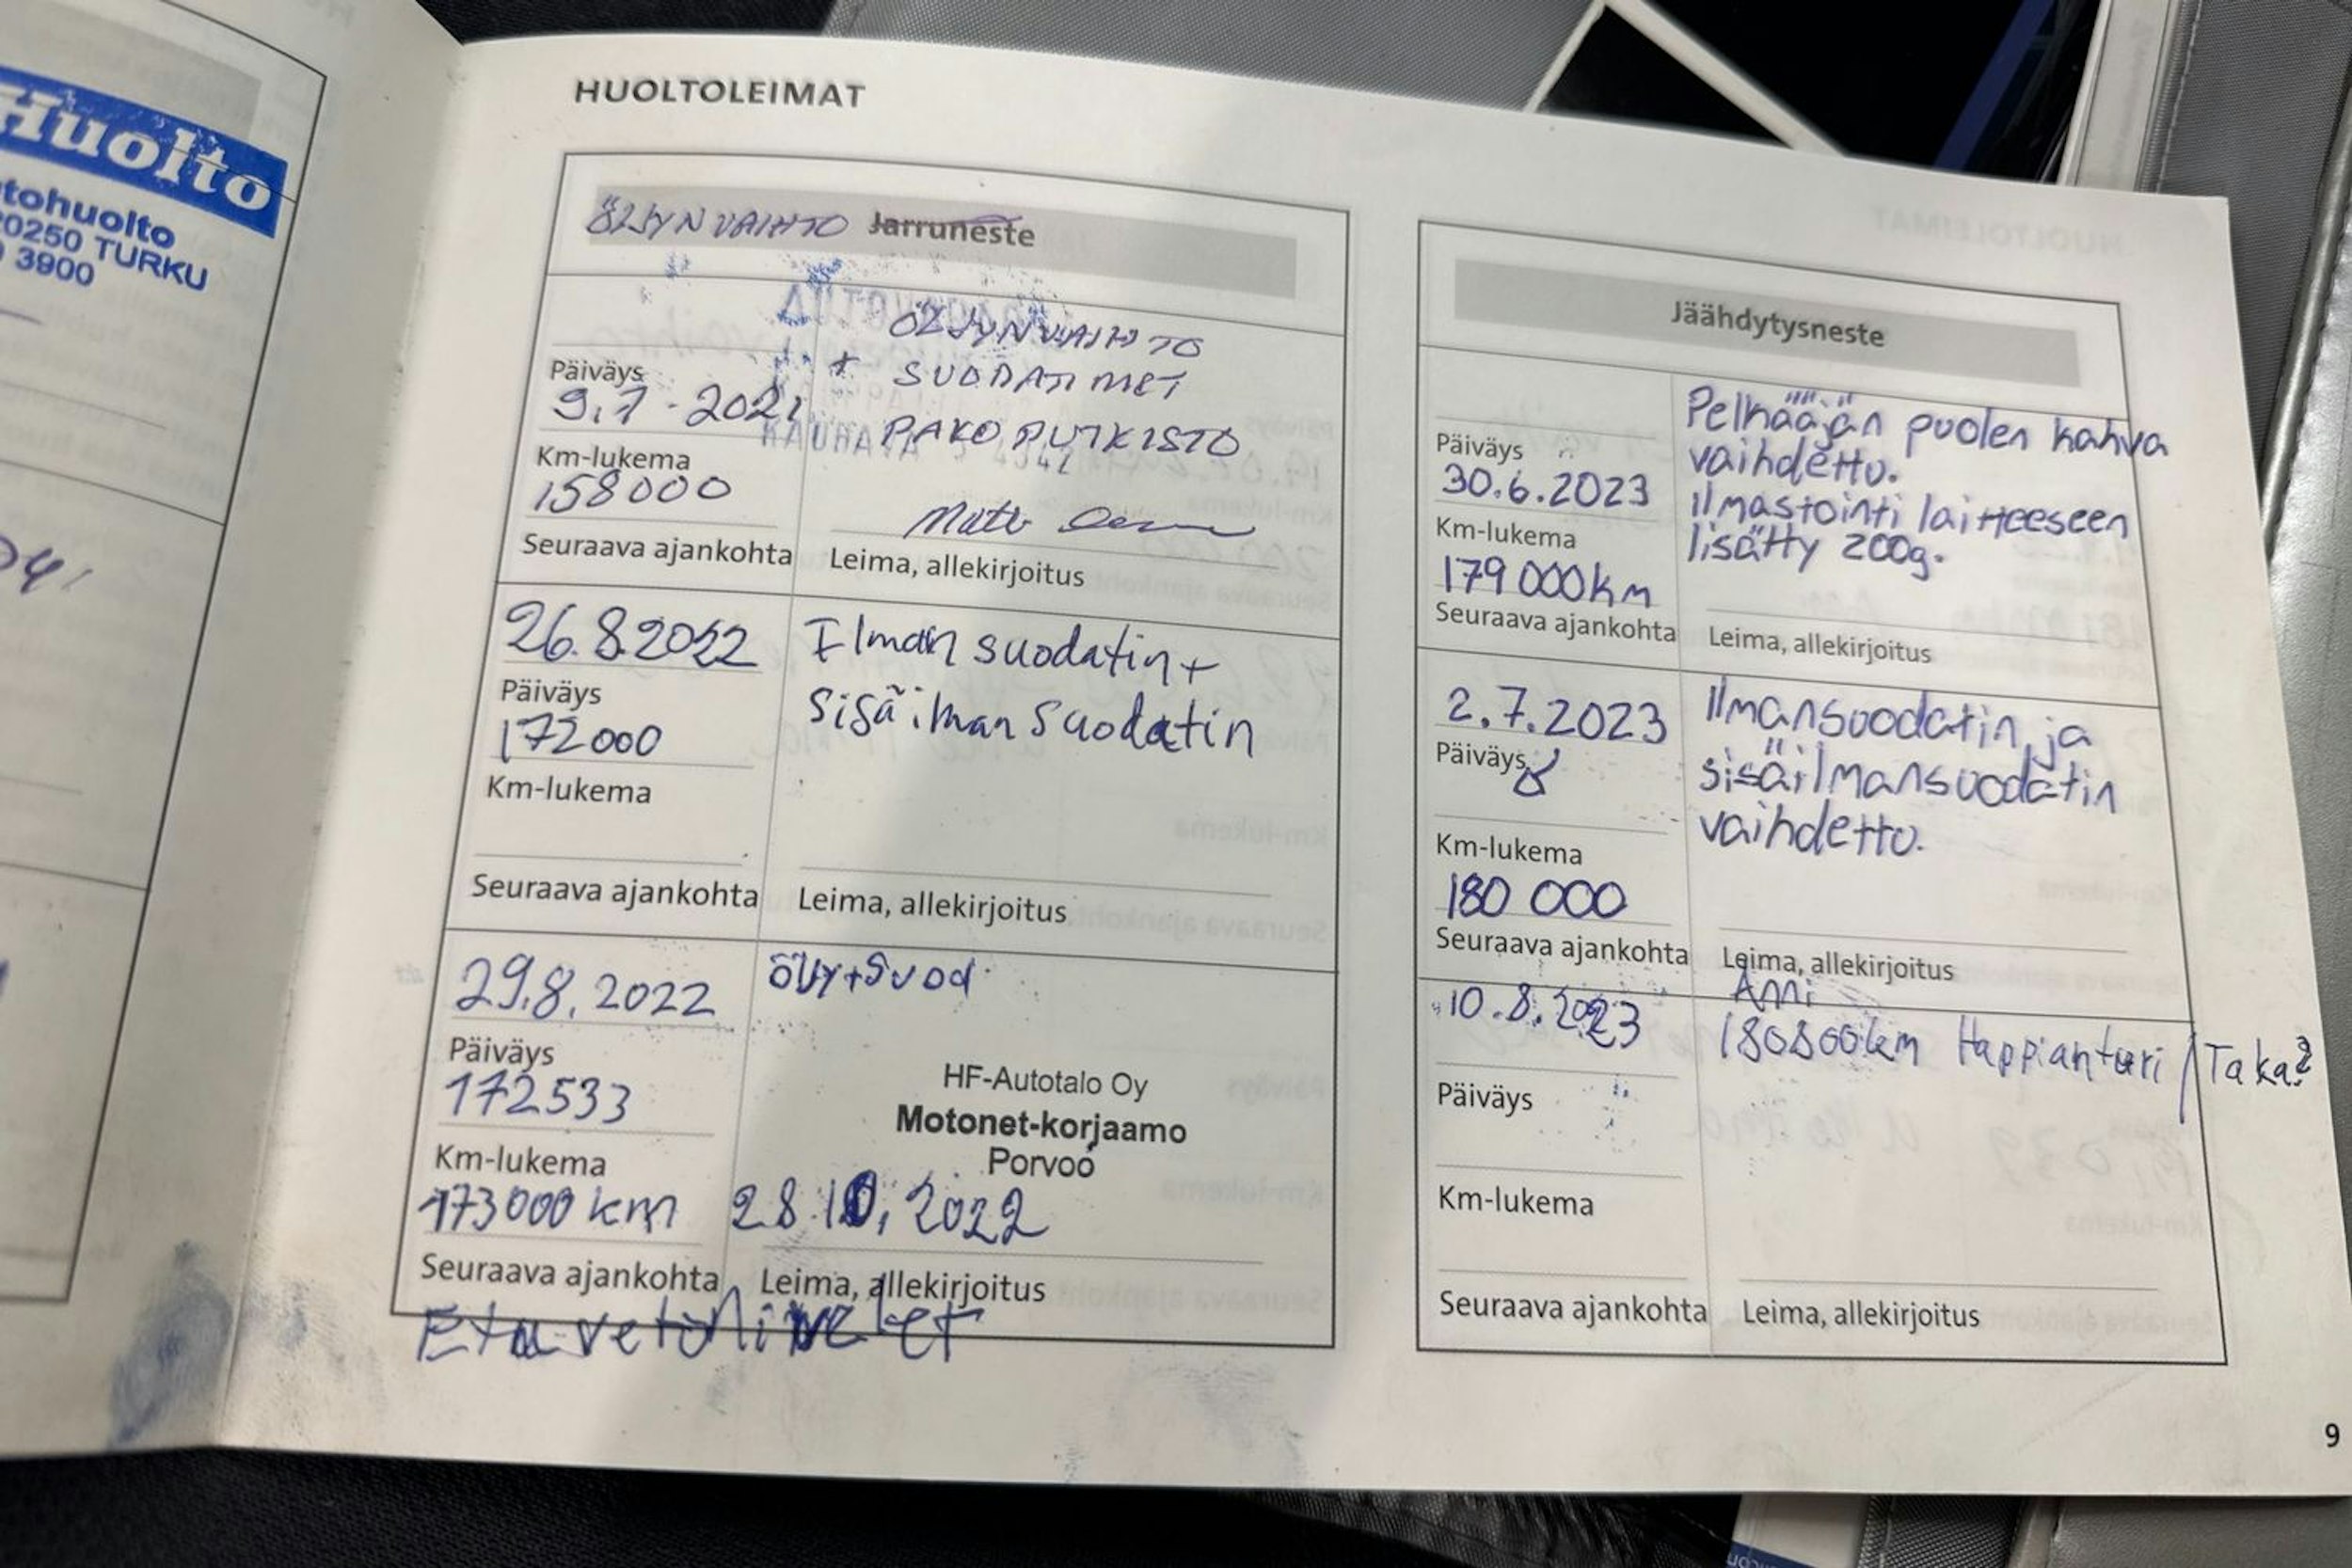 Huolto
tohuolto
20250 TURKU
3900
HUOLTOLEIMAT
ÖLJYN VAIHTO Jarruneste
ÖLJYNVAIHTO
+ SUODATIMET
PAKOPUTKISTO
Päiväys
9.7.2021
Km-lukema
158000
Seuraava ajankohta
Leima, allekirjoitus
26.8.2022
Ilman suodatin +
Sisäilman suodatin
Päiväys
172000
Km-lukema
Seuraava ajankohta
Leima, allekirjoitus
29.8.2022
öljy+suod.
Päiväys
172533
HF-Autotalo Oy
Motonet-korjaamo
Porvoo
Km-lukema
173000 km 28.10.2022
Seuraava ajankohta
Leima, allekirjoitus
Etuvetonivelet
Jäähdytysneste
Pelkääjän puolen kahva
vaihdettu.
Ilmastointi laitteeseen
lisätty 200g.
Päiväys
30.6.2023
Km-lukema
179 000km
Seuraava ajankohta
Leima, allekirjoitus
2.7.2023
Ilmansuodatin ja
sisäilmansuodatin
vaihdettu.
Päiväys
Km-lukema
180 000
Seuraava ajankohta
Leima, allekirjoitus
10.8.2023
180800km Happianturi / Taka?
Päiväys
Km-lukema
Seuraava ajankohta
Leima, allekirjoitus
9